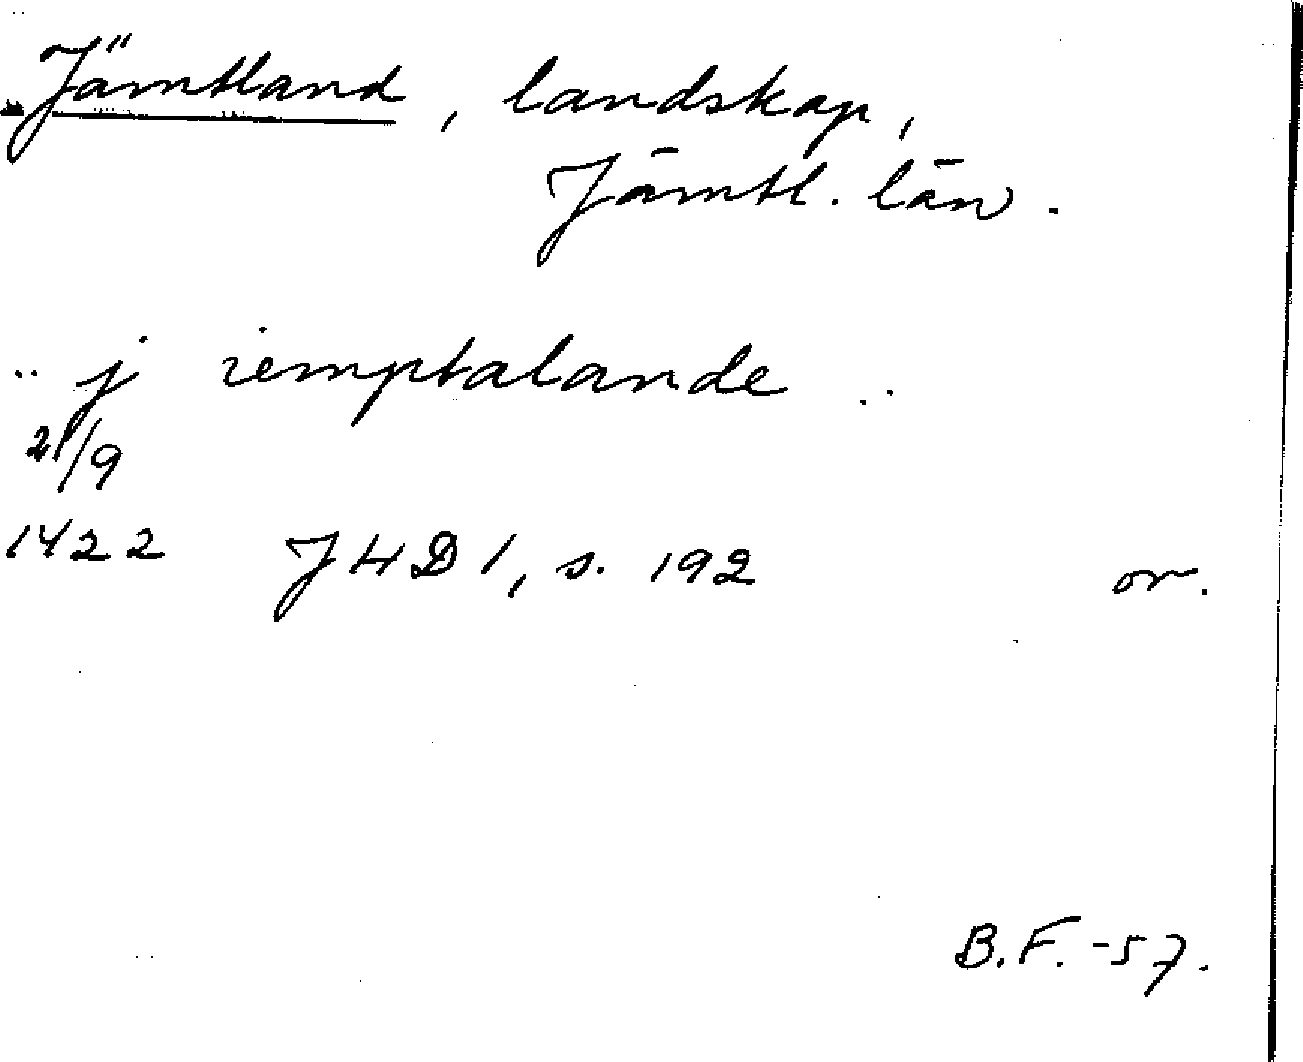 Jämtland, landskap,
Jämtl. län.
.. j iemptalande ..
21/9
1422 JHD 1, s. 192 or.
B.F. -57.